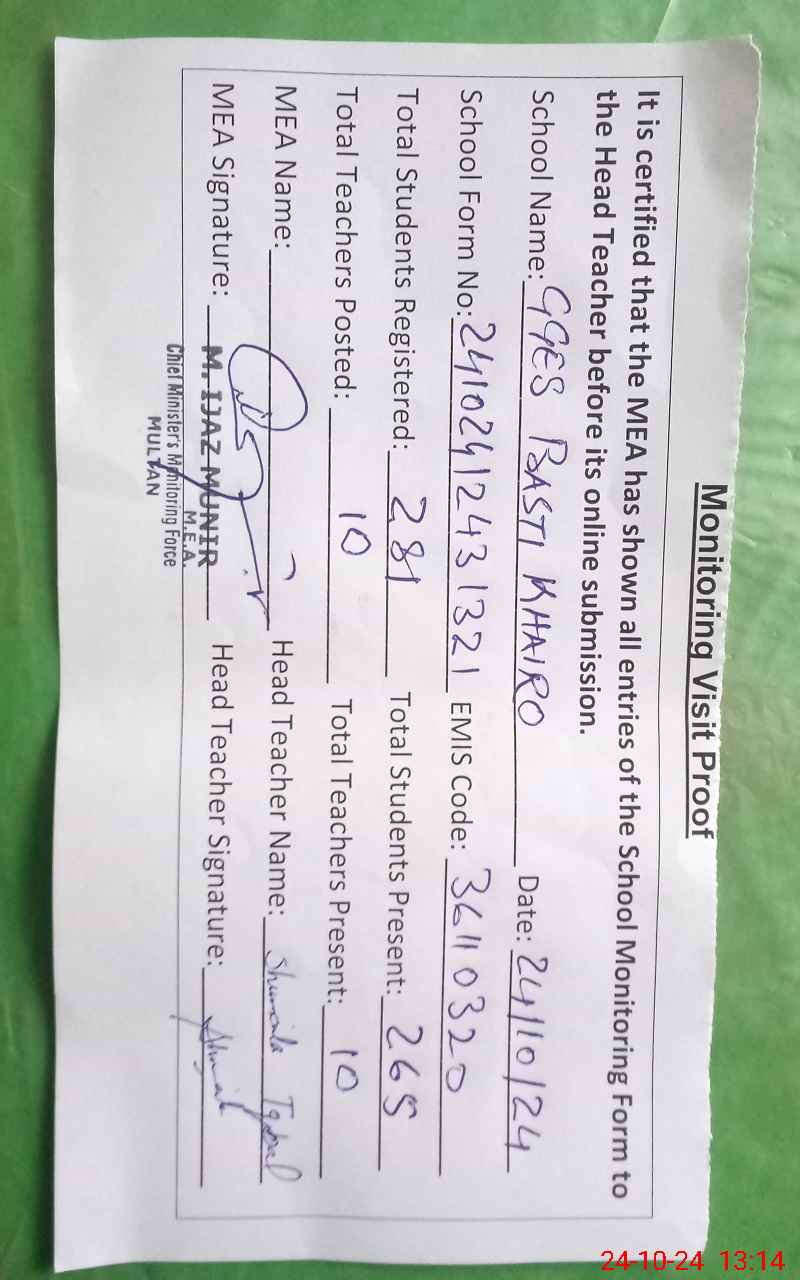 Monitoring Visit Proof
It is certified that the MEA has shown all entries of the School Monitoring Form to
the Head Teacher before its online submission.
School Name: GGES BASTI KHAIRO Date: 24/10/24
School Form No: 24102412431321 EMIS Code: 36110320
Total Students Registered: 281 Total Students Present: 265
Total Teachers Posted: 10 Total Teachers Present: 10
MEA Name: Head Teacher Name: Iqbal
MEA Signature: Head Teacher Signature:
M. IJAZ MUNIR
M.E.A.
Chief Minister's Monitoring Force
MULTAN
24-10-24 13:14